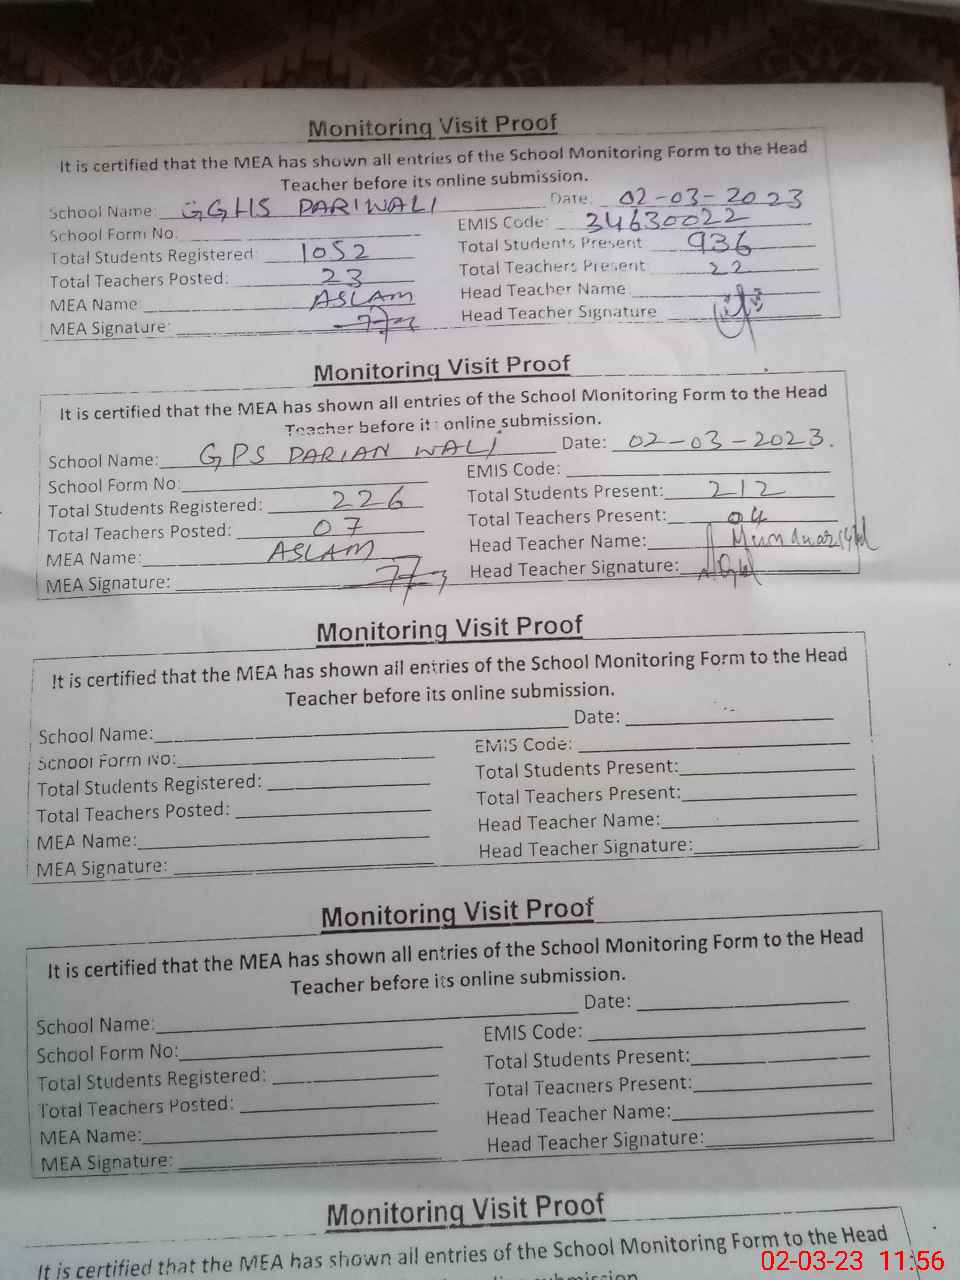 Monitoring Visit Proof
It is certified that the MEA has shown all entries of the School Monitoring Form to the Head
Teacher before its online submission.
School Name: GGHS DARIWALI Date: 02-03-2023
School Form No: EMIS Code: 34630022
Total Students Registered: 1052 Total Students Present 936
Total Teachers Posted: 23 Total Teachers Present 22
MEA Name: ASLAM Head Teacher Name
MEA Signature: Head Teacher Signature
Monitoring Visit Proof
It is certified that the MEA has shown all entries of the School Monitoring Form to the Head
Teacher before its online submission.
School Name: GPS DARIAN WALI Date: 02-03-2023.
School Form No: EMIS Code:
Total Students Registered: 226 Total Students Present: 212
Total Teachers Posted: 07 Total Teachers Present: 04
MEA Name: ASLAM Head Teacher Name:
MEA Signature: Head Teacher Signature:
Monitoring Visit Proof
It is certified that the MEA has shown all entries of the School Monitoring Form to the Head
Teacher before its online submission.
School Name: Date:
School Form No: EMIS Code:
Total Students Registered: Total Students Present:
Total Teachers Posted: Total Teachers Present:
MEA Name: Head Teacher Name:
MEA Signature: Head Teacher Signature:
Monitoring Visit Proof
It is certified that the MEA has shown all entries of the School Monitoring Form to the Head
Teacher before its online submission.
School Name: Date:
School Form No: EMIS Code:
Total Students Registered: Total Students Present:
Total Teachers Posted: Total Teachers Present:
MEA Name: Head Teacher Name:
MEA Signature: Head Teacher Signature:
Monitoring Visit Proof
It is certified that the MEA has shown all entries of the School Monitoring Form to the Head
02-03-23 11:56